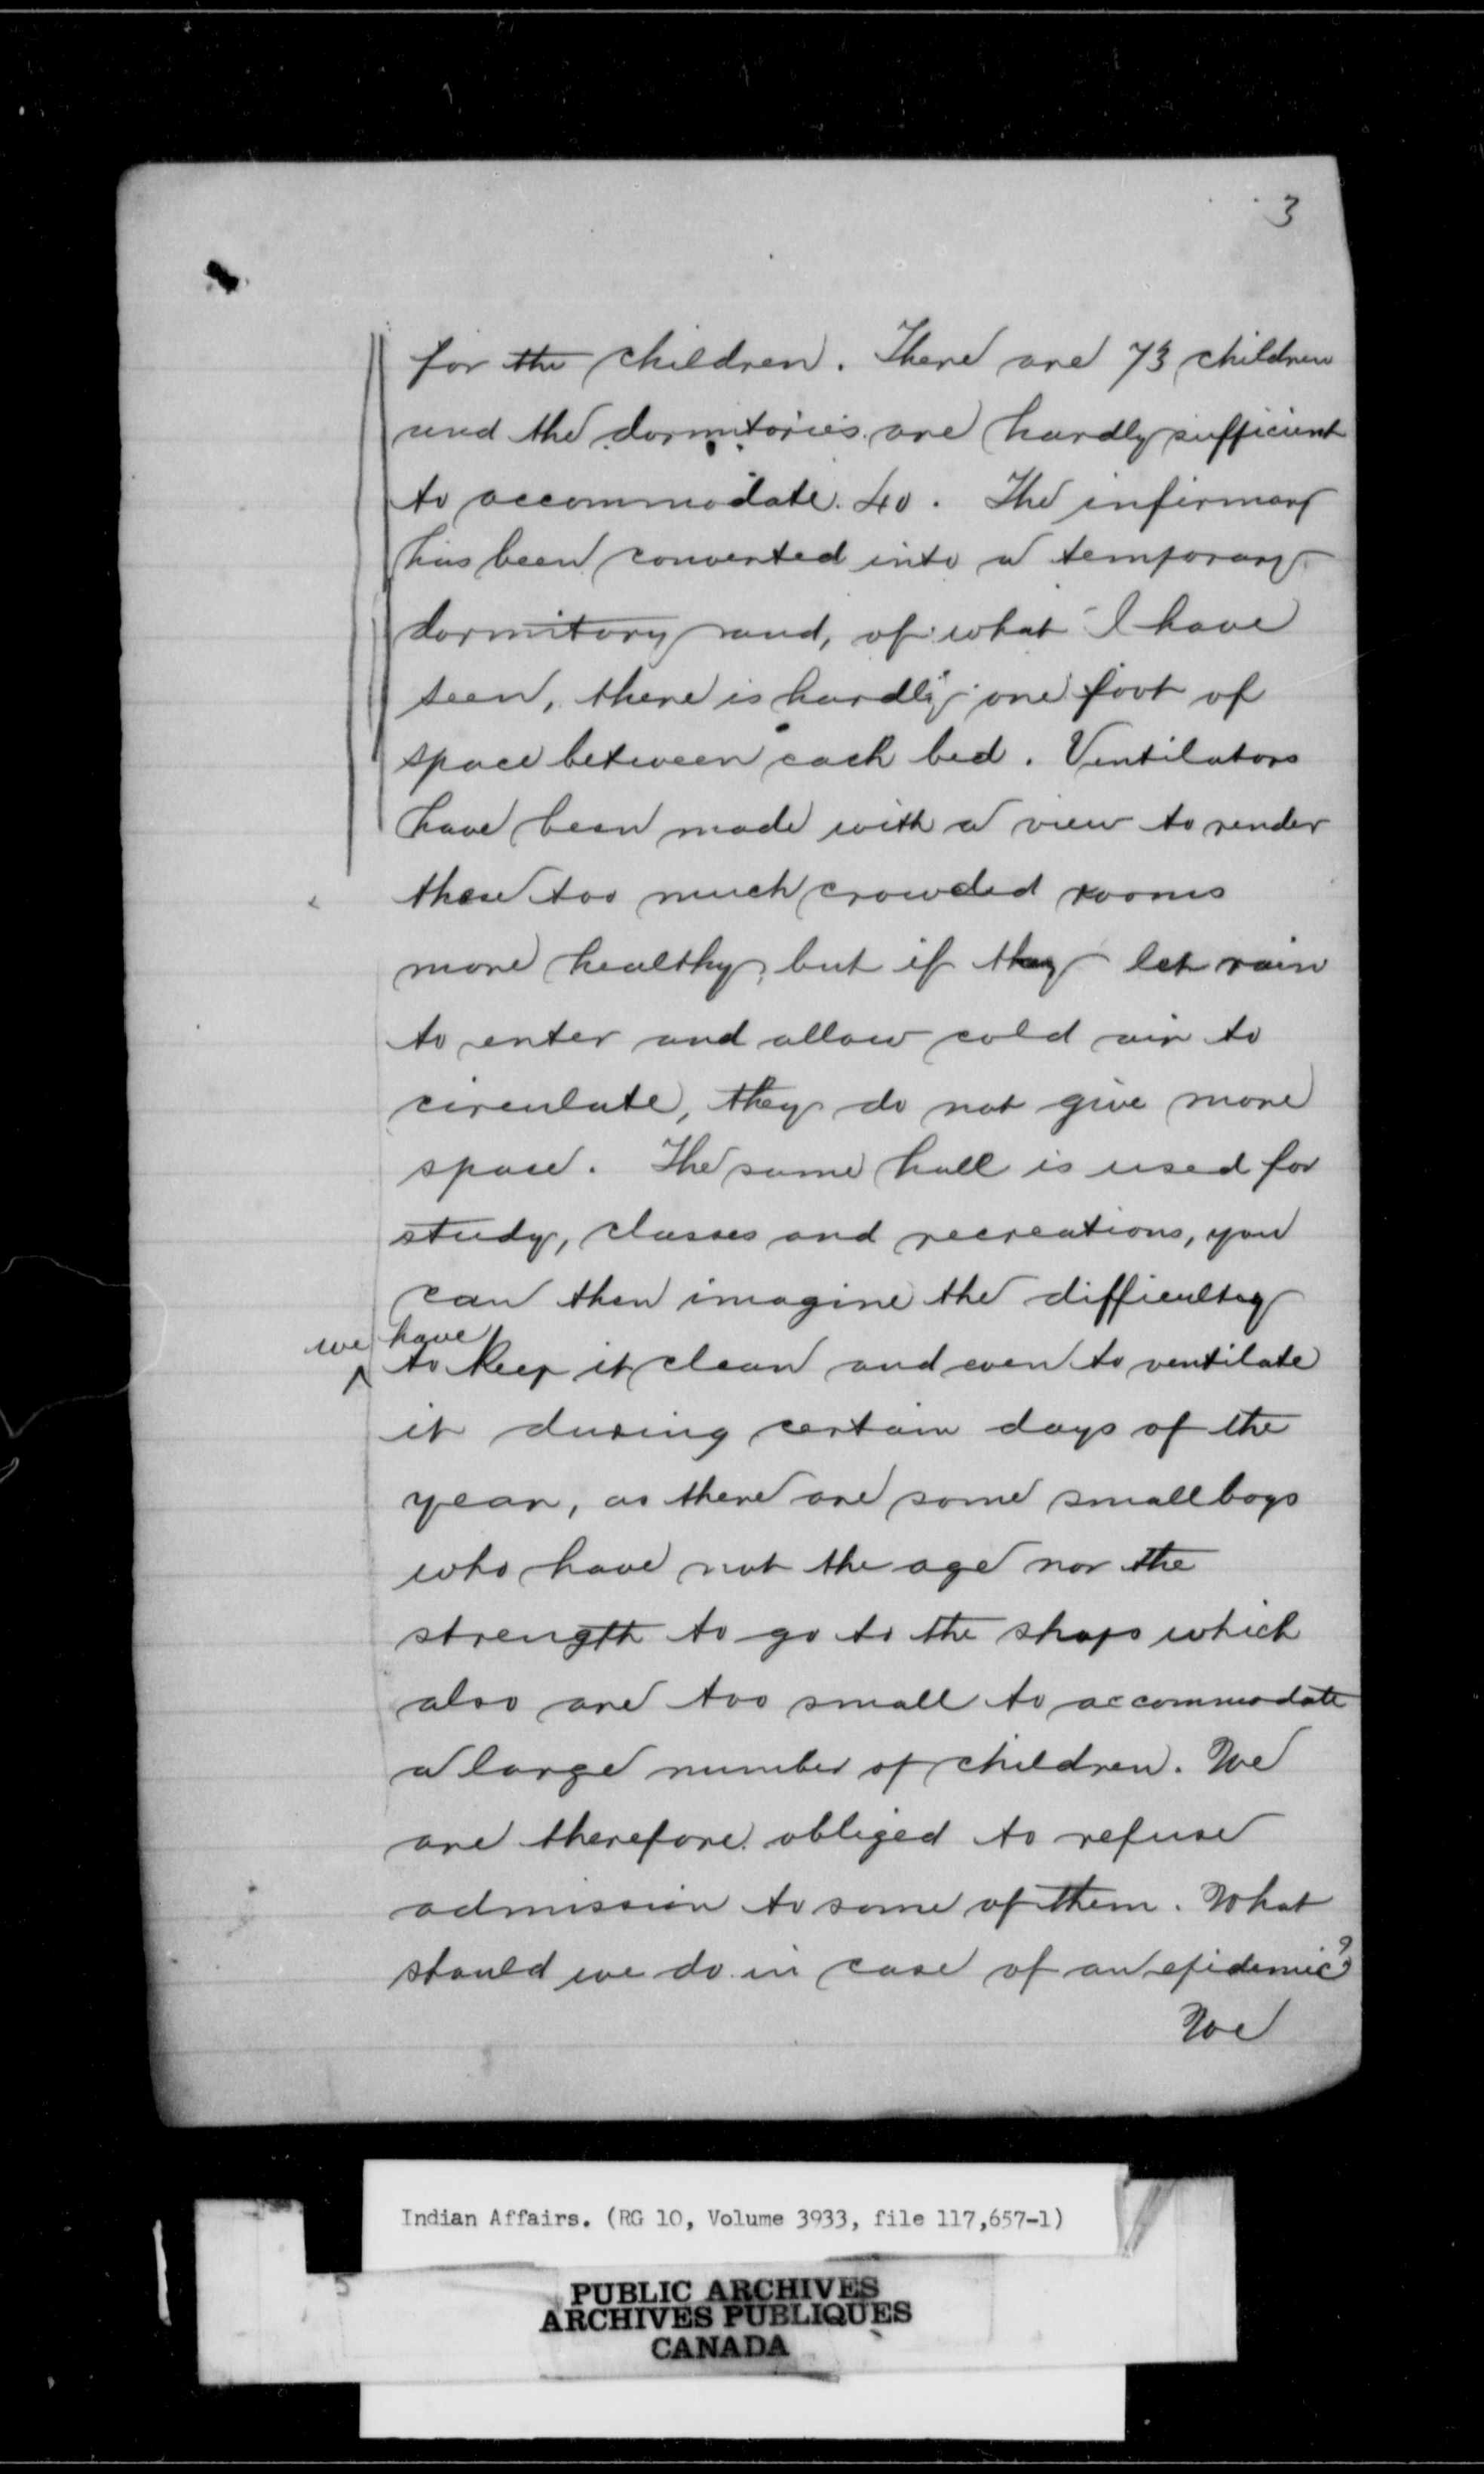 3
for the children. There are 73 children
and the dormitories are hardly sufficient
to accommodate 40. The infirmary
has been converted into a temporary
dormitory and, of what I have
seen, there is hardly one foot of
space between each bed. Ventilators
have been made with a view to render
these too much crowded rooms
more healthy, but if they let rain
to enter and allow cold air to
circulate, they do not give more
space. The same hall is used for
study, classes and recreations, you
can then imagine the difficulty
we have
to keep it clean and even to ventilate
it during certain days of the
year, as there are some small boys
who have not the age nor the
strength to go to the shops which
also are too small to accommodate
a large number of children. We
are therefore obliged to refuse
admission to some of them. What
should we do in case of an epidemic?
We
Indian Affairs. (RG 10, Volume 3933, file 117,657-1)
5
PUBLIC ARCHIVES
ARCHIVES PUBLIQUES
CANADA